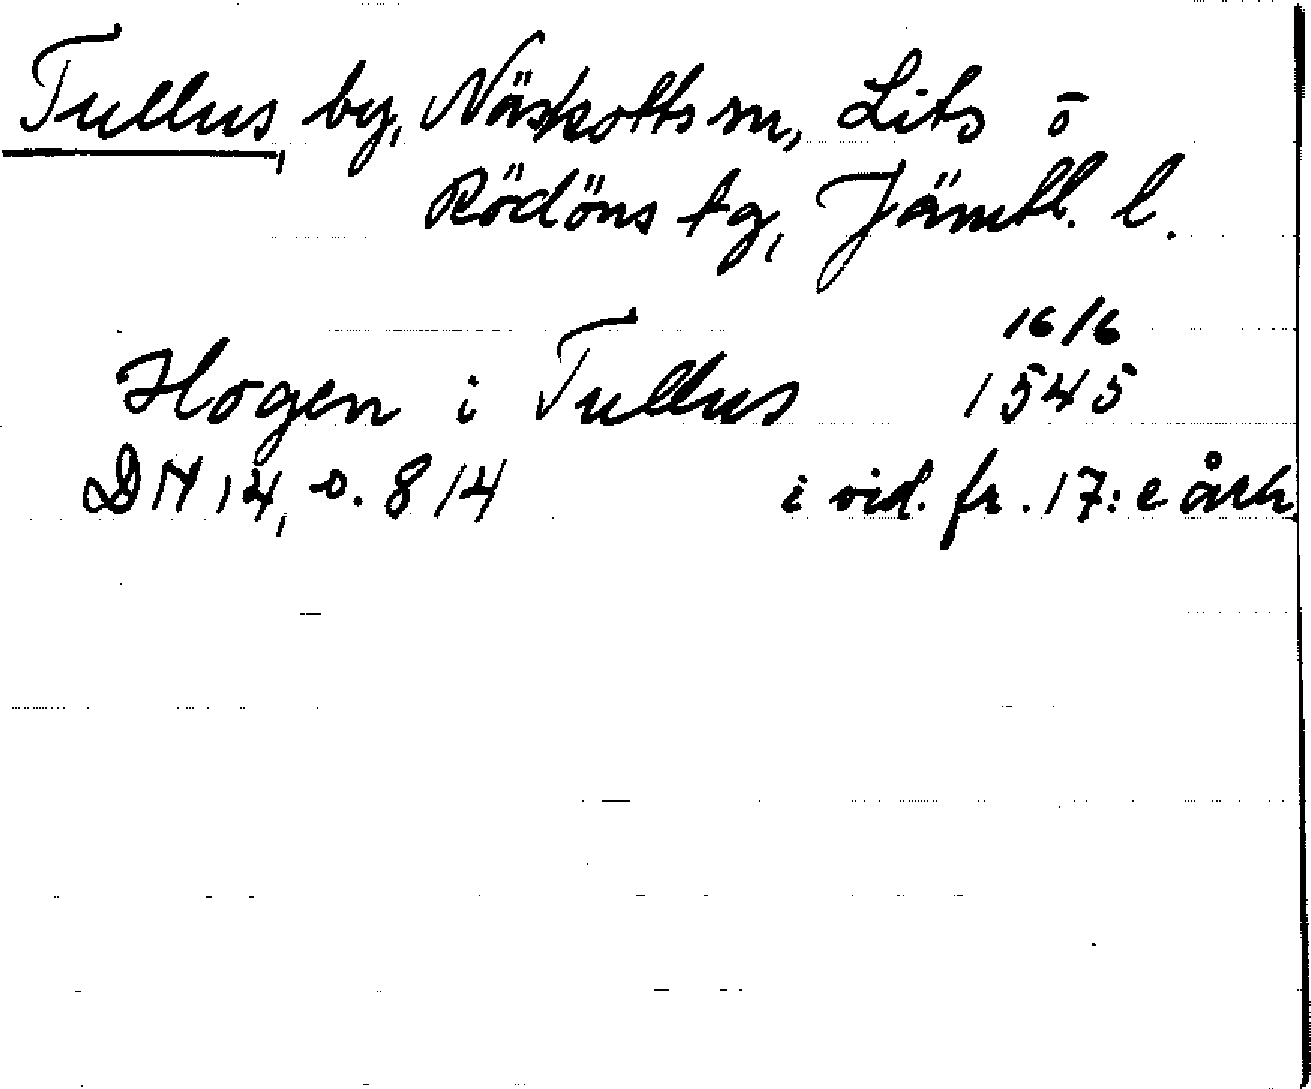 Tullus, by, Näskotts sn, Lits o
Rödöns tg, Jämtl. l.
16/6
Hogen i Tullus 1545
DN 14, s. 814 i vid. fr. 17:e årh.